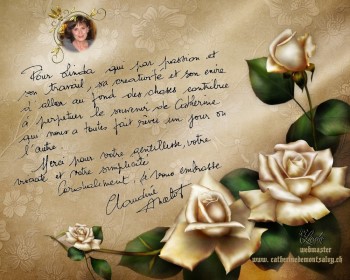 Pour Linda qui par passion et
son travail, sa créativité et son envie
d'aller au fond des choses contribue
à perpétuer le souvenir de Catherine
qui nous a toutes fait rêver un jour ou
l'autre.
Merci pour votre gentillesse, votre
et votre simplicité
Cordialement, je vous embrasse
Claudine
webmaster
www.catherinedemontsalvy.ch